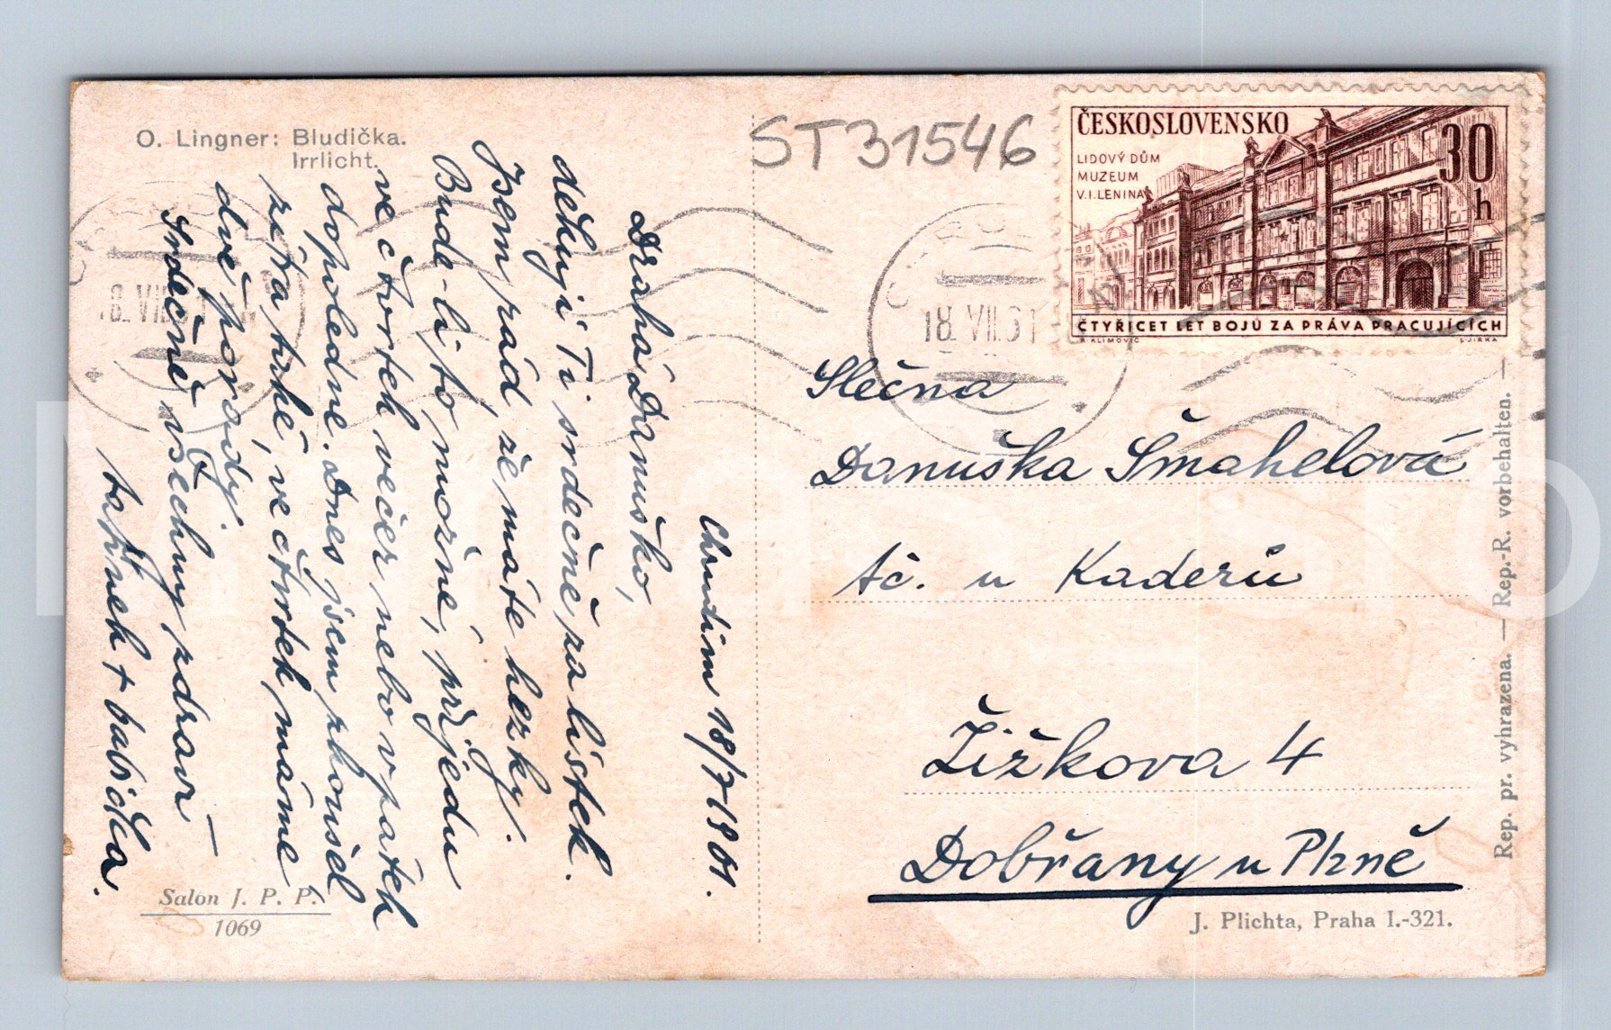 O. Lingner: Bludička.
Irrlicht.
ST31546
ČESKOSLOVENSKO
30
h
LIDOVÝ DŮM
MUZEUM
V.I.LENINA
ČTYŘICET LET BOJŮ ZA PRÁVA PRACUJÍCÍCH
18. VII. 61
Chrudim 18/7-1961.
Drahá Danuško,
děkuji Ti srdečně za lístek.
Jsem rád, že máte hezky.
Bude-li to možné, přijedu
ve čtvrtek večer nebo v pátek
dopoledne. Dnes jsem zkoušel
zítra také, ve čtvrtek máme
dvě porady.
Srdečně všechny zdraví
tatínek + babička.
Slečna
Danuška Šmahelová
tč. u Kaderů
Žižkova 4
Dobřany u Plzně
Salon J. P. P.
1069
J. Plichta, Praha I.-321.
Rep. pr. vyhrazena. — Rep.-R. vorbehalten. —